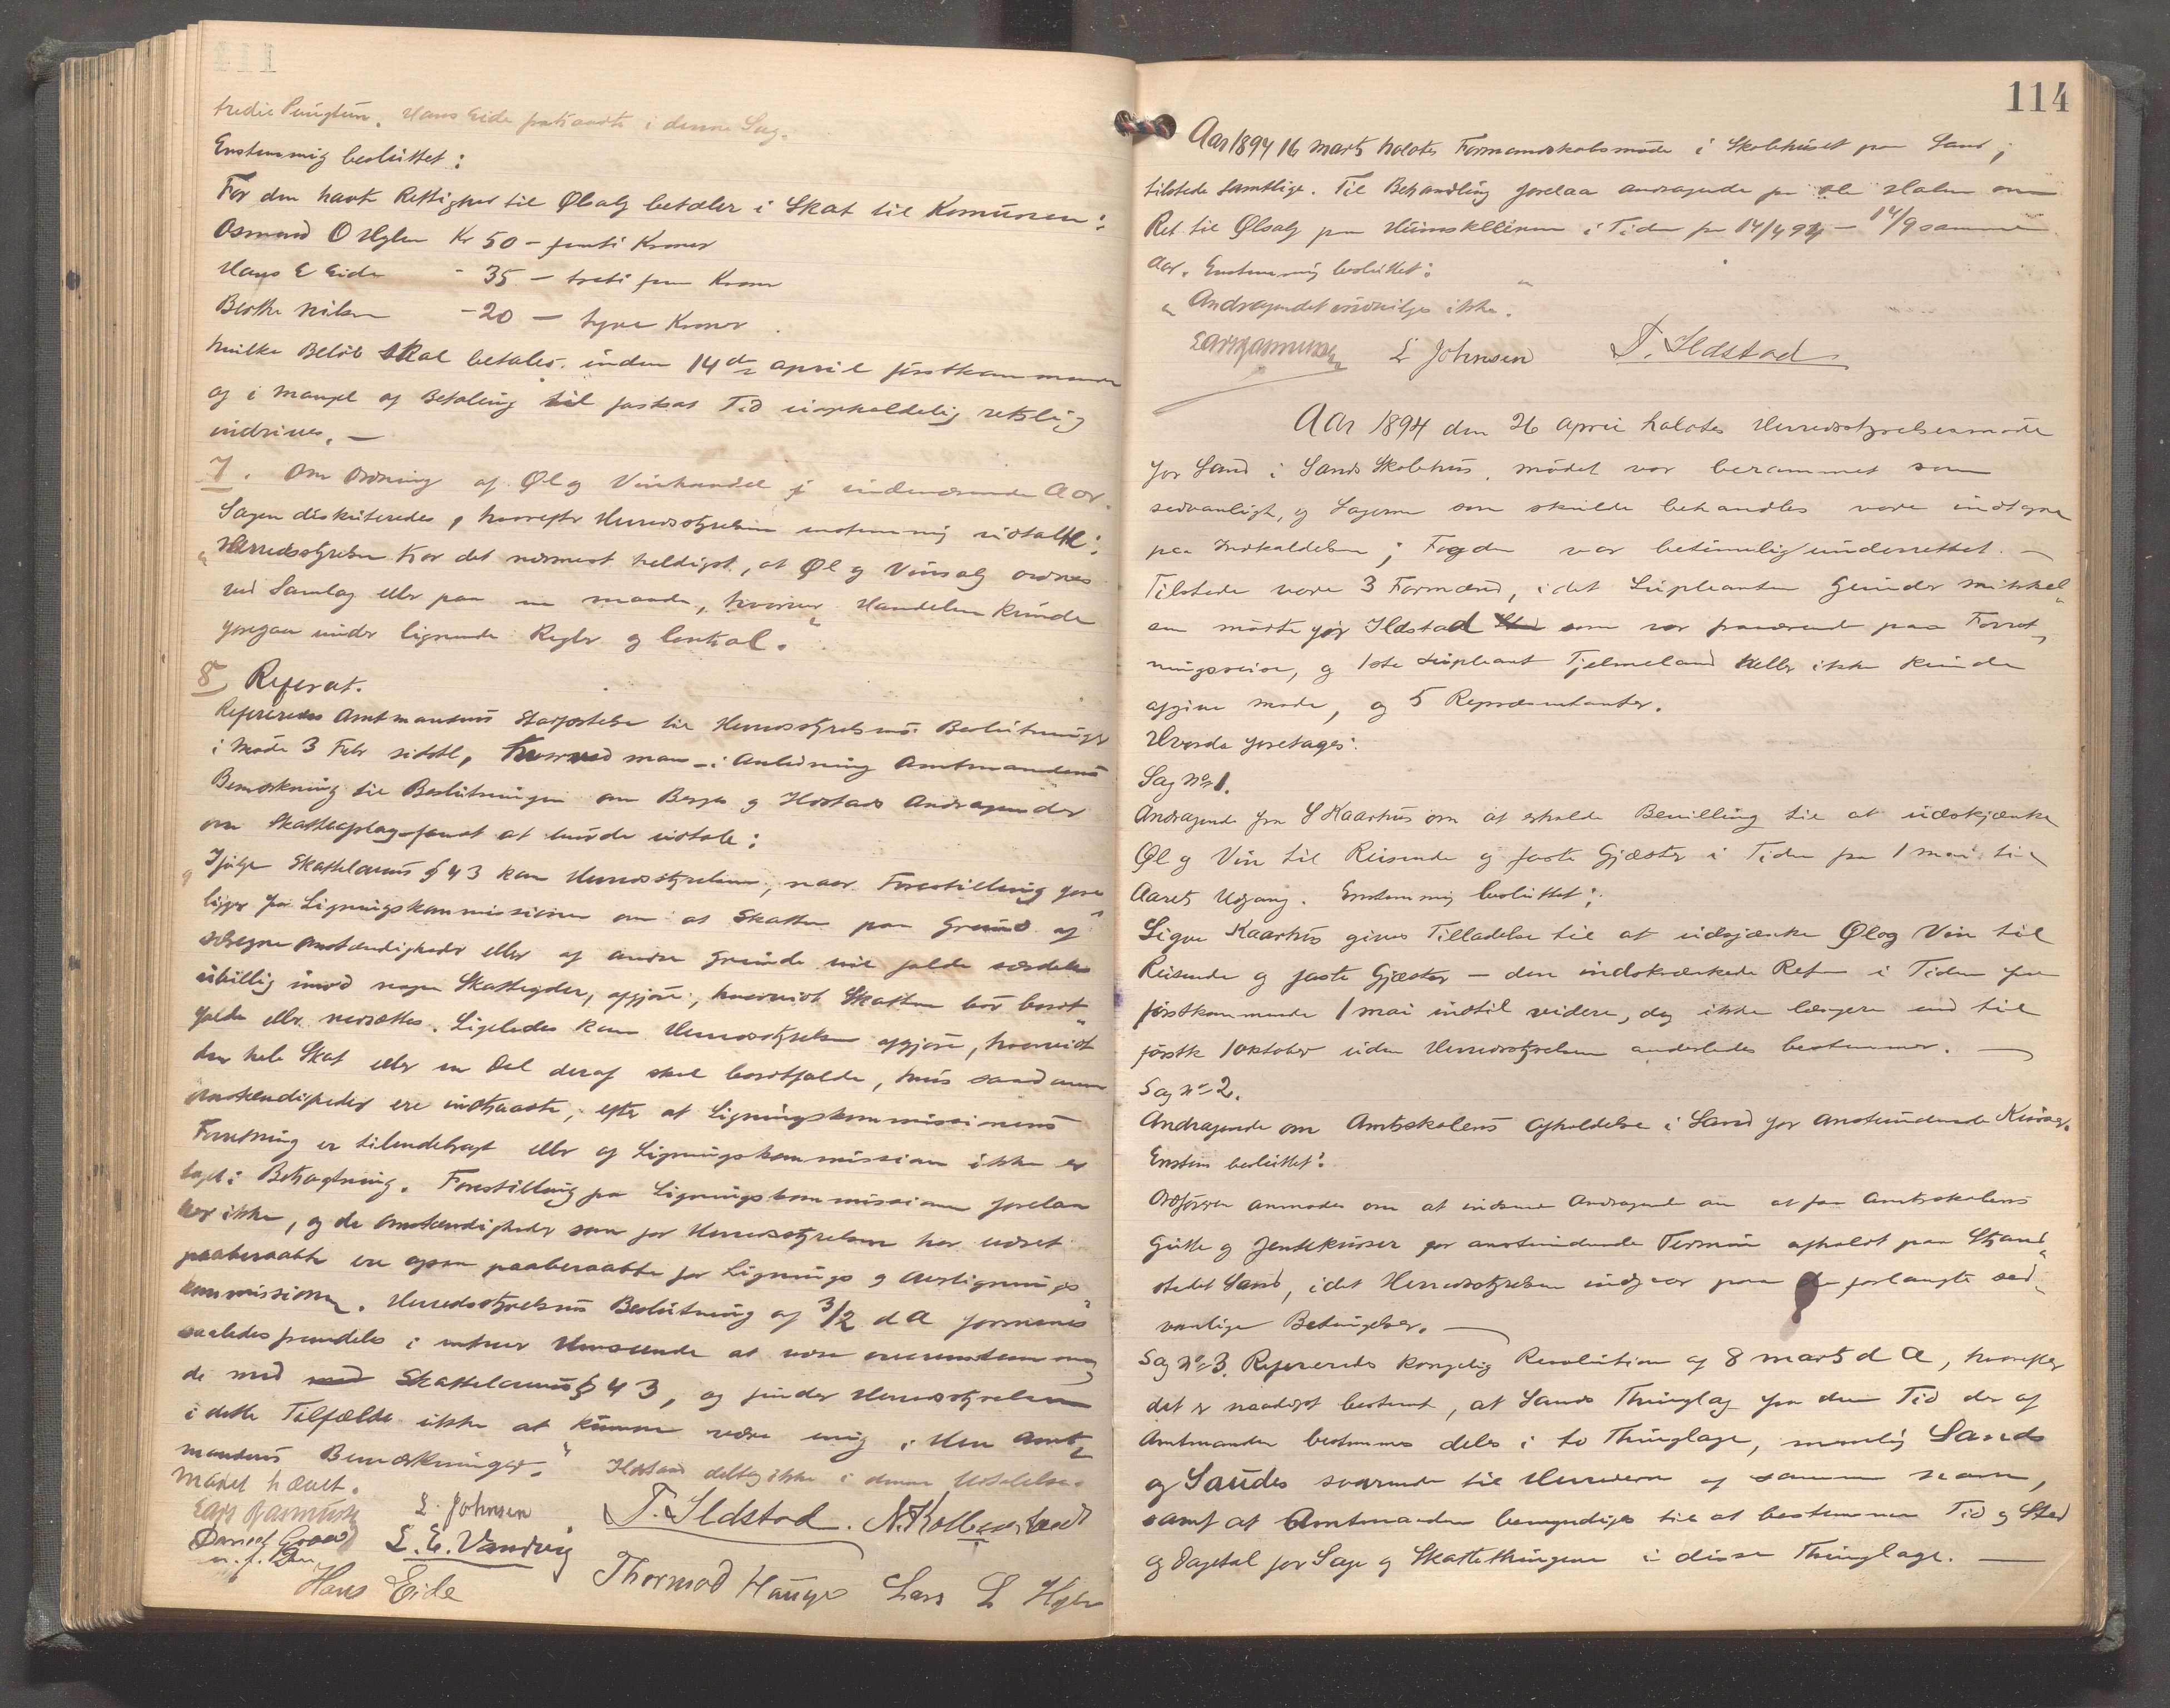 tredie Punktum. Hans Eide fratraadte i denne Sag.
Enstemmig besluttet:
For den havte Rettighed til Ølsalg betaler i Skat til Komunen:
Osmund O Hylen Kr 50 – femti Kroner
Hans E Eide - 35 – treti fem Kroner
Berthe Nilsen - 20 – tyve Kroner.
hvilke Beløb skal betales inden 14de april førstkommende
og i Mangel af Betaling til fastsat Tid uopholdelig retslig
inddrives. —
7. Om Ordning af Øl og Vinhandel i indeværende Aar.
Sagen diskuteredes, hvorefter Herredsstyrelsen enstemmig udtalte:
"Herredsstyrelsen tror det nærmest heldigst, at Øl og Vinsalg ordnes
ved Samlag eller paa en maade, hvorved Handelen kunde
foregaa under lignende Regler og Control."
8 Referat.
Refereredes Amtmandens Paategnelse til Herredsstyrelsens Beslutninger
i Møde 3 Febr sidstl, hvorved man i Anledning Amtmandens
Bemærkning til Beslutningen om Berges og Ildstads Andragender
om Skatteaflag fandt at burde udtale:
"Ifølge Skattelovens § 43 kan Herredsstyrelsen, naar Forestilling fore
ligger fra Ligningskommissionen om at Skatten paa Grund af
særegne Omstændigheder eller af andre Grunde vil falde særdeles
ubillig imod nogen Skatteyder, afgjøre, hvorvidt Skatten bør bort
falde eller nedsættes. Ligeledes kan Herredsstyrelsen afgjøre, hvorvidt
den hele Skat eller en Del deraf skal bortfalde, hvis saadanne
Omstændigheder ere indtraadte, efter at Ligningskommissionens
Forretning er tilendebragt eller af Ligningskommissionen ikke er
taget i Betragtning. Forestilling fra Ligningskommissionen forelaa
her ikke, og de Omstændigheder som for Herredsstyrelsen har været
paaberaabte ere ogsaa paaberaabte for Lignings og Overligningss
kommissionen. Herredsstyrelsens Beslutning af 3/2 d A formenes
saaledes fremdeles i enhver Henseende at være overensstemmen
de med Skattelovens § 43, og finder Herredsstyrelsen
i dette Tilfælde ikke at kunne være enig i Herr Amt
mandens Bemærkninger." Ildstad deltog ikke i denne Udtalelse.
Mødet hævet.
Lars Rasmusen L. Johnsen T. Ildstad. N. Kolbeinstvedt
Daniel Graae L. E. Vandvig
Hans Eide Thormod Hauge Lars L Hylen
114
Aar 1894 16 Marts holdtes Formandskabsmøde i Skolehuset paa Sand,
tilstede samtlige. Til Behandling forelaa andragende fra Ole Halen om
Ret til Ølsalg paa i Tiden fra 14/4 94 – 14/9 samme
Aar. Enstemmig besluttet:
"Andragendet indvilges ikke."
Lars Rasmusen L Johnsen T. Ildstad
Aar 1894 den 26 April holdtes Herredsstyrelsesmøde
for Sand i Sands Skolehus. Mødet var berammet som
sedvanligt, og Sagerne som skulde behandles vare indtagne
paa Indkaldelsen; Fogden var betimelig underrettet. —
Tilstede vare 3 Formænd, idet Supleanten Gunder Mikkel
sen mødte for Ildstad som var fraværende paa Forret
ningsreise, og 1ste supleant Tjelmeland heller ikke kunde
afgive møde, og 5 Repræsentanter.
Hvorda foretages:
Sag No 1.
Andragende fra S Kaarhus om at erholde Bevilling til at udskjænke
Øl og Vin til Reisende og faste Gjæster i Tiden fra 1 mai til
Aarets Udgang. Enstemmig besluttet:
Sigve Kaarhus gives Tilladelse til at udskjænke Øl og Vin til
Reisende og faste Gjæster – den indskrænkede Ret – i Tiden fra
førstkommende 1 mai indtil videre, dog ikke længere end til
førstk 1 oktober uden Herredsstyrelsen anderledes bestemmer. —
Sag No 2.
Andragende om Amtsskolens Afholdelse i Sand for anstundende Kurser.
Enstem besluttet:
Ordføren anmodes om at indsende Andragende om at faa Amtsskolens
Gutte og Jentekurser for anstundende Termin afholdt paa Strand
stedet Sand, idet Herredsstyrelsen indgaar paa de forlangte sed
vanlige Betingelser. —
Sag No 3. Refereredes kongelig Resolution af 8 marts d A, hvorefter
det er naadigst bestemt, at Sands Thinglag fra den Tid der af
Amtmanden bestemmes deles i to Thinglage, nemlig Sands
og Saudes svarende til Herrederne af samme navn,
samt at Amtmanden bemyndiges til at bestemme Tid og Sted
og Dagetal for Sage og Skattethingene i disse Thinglage. —